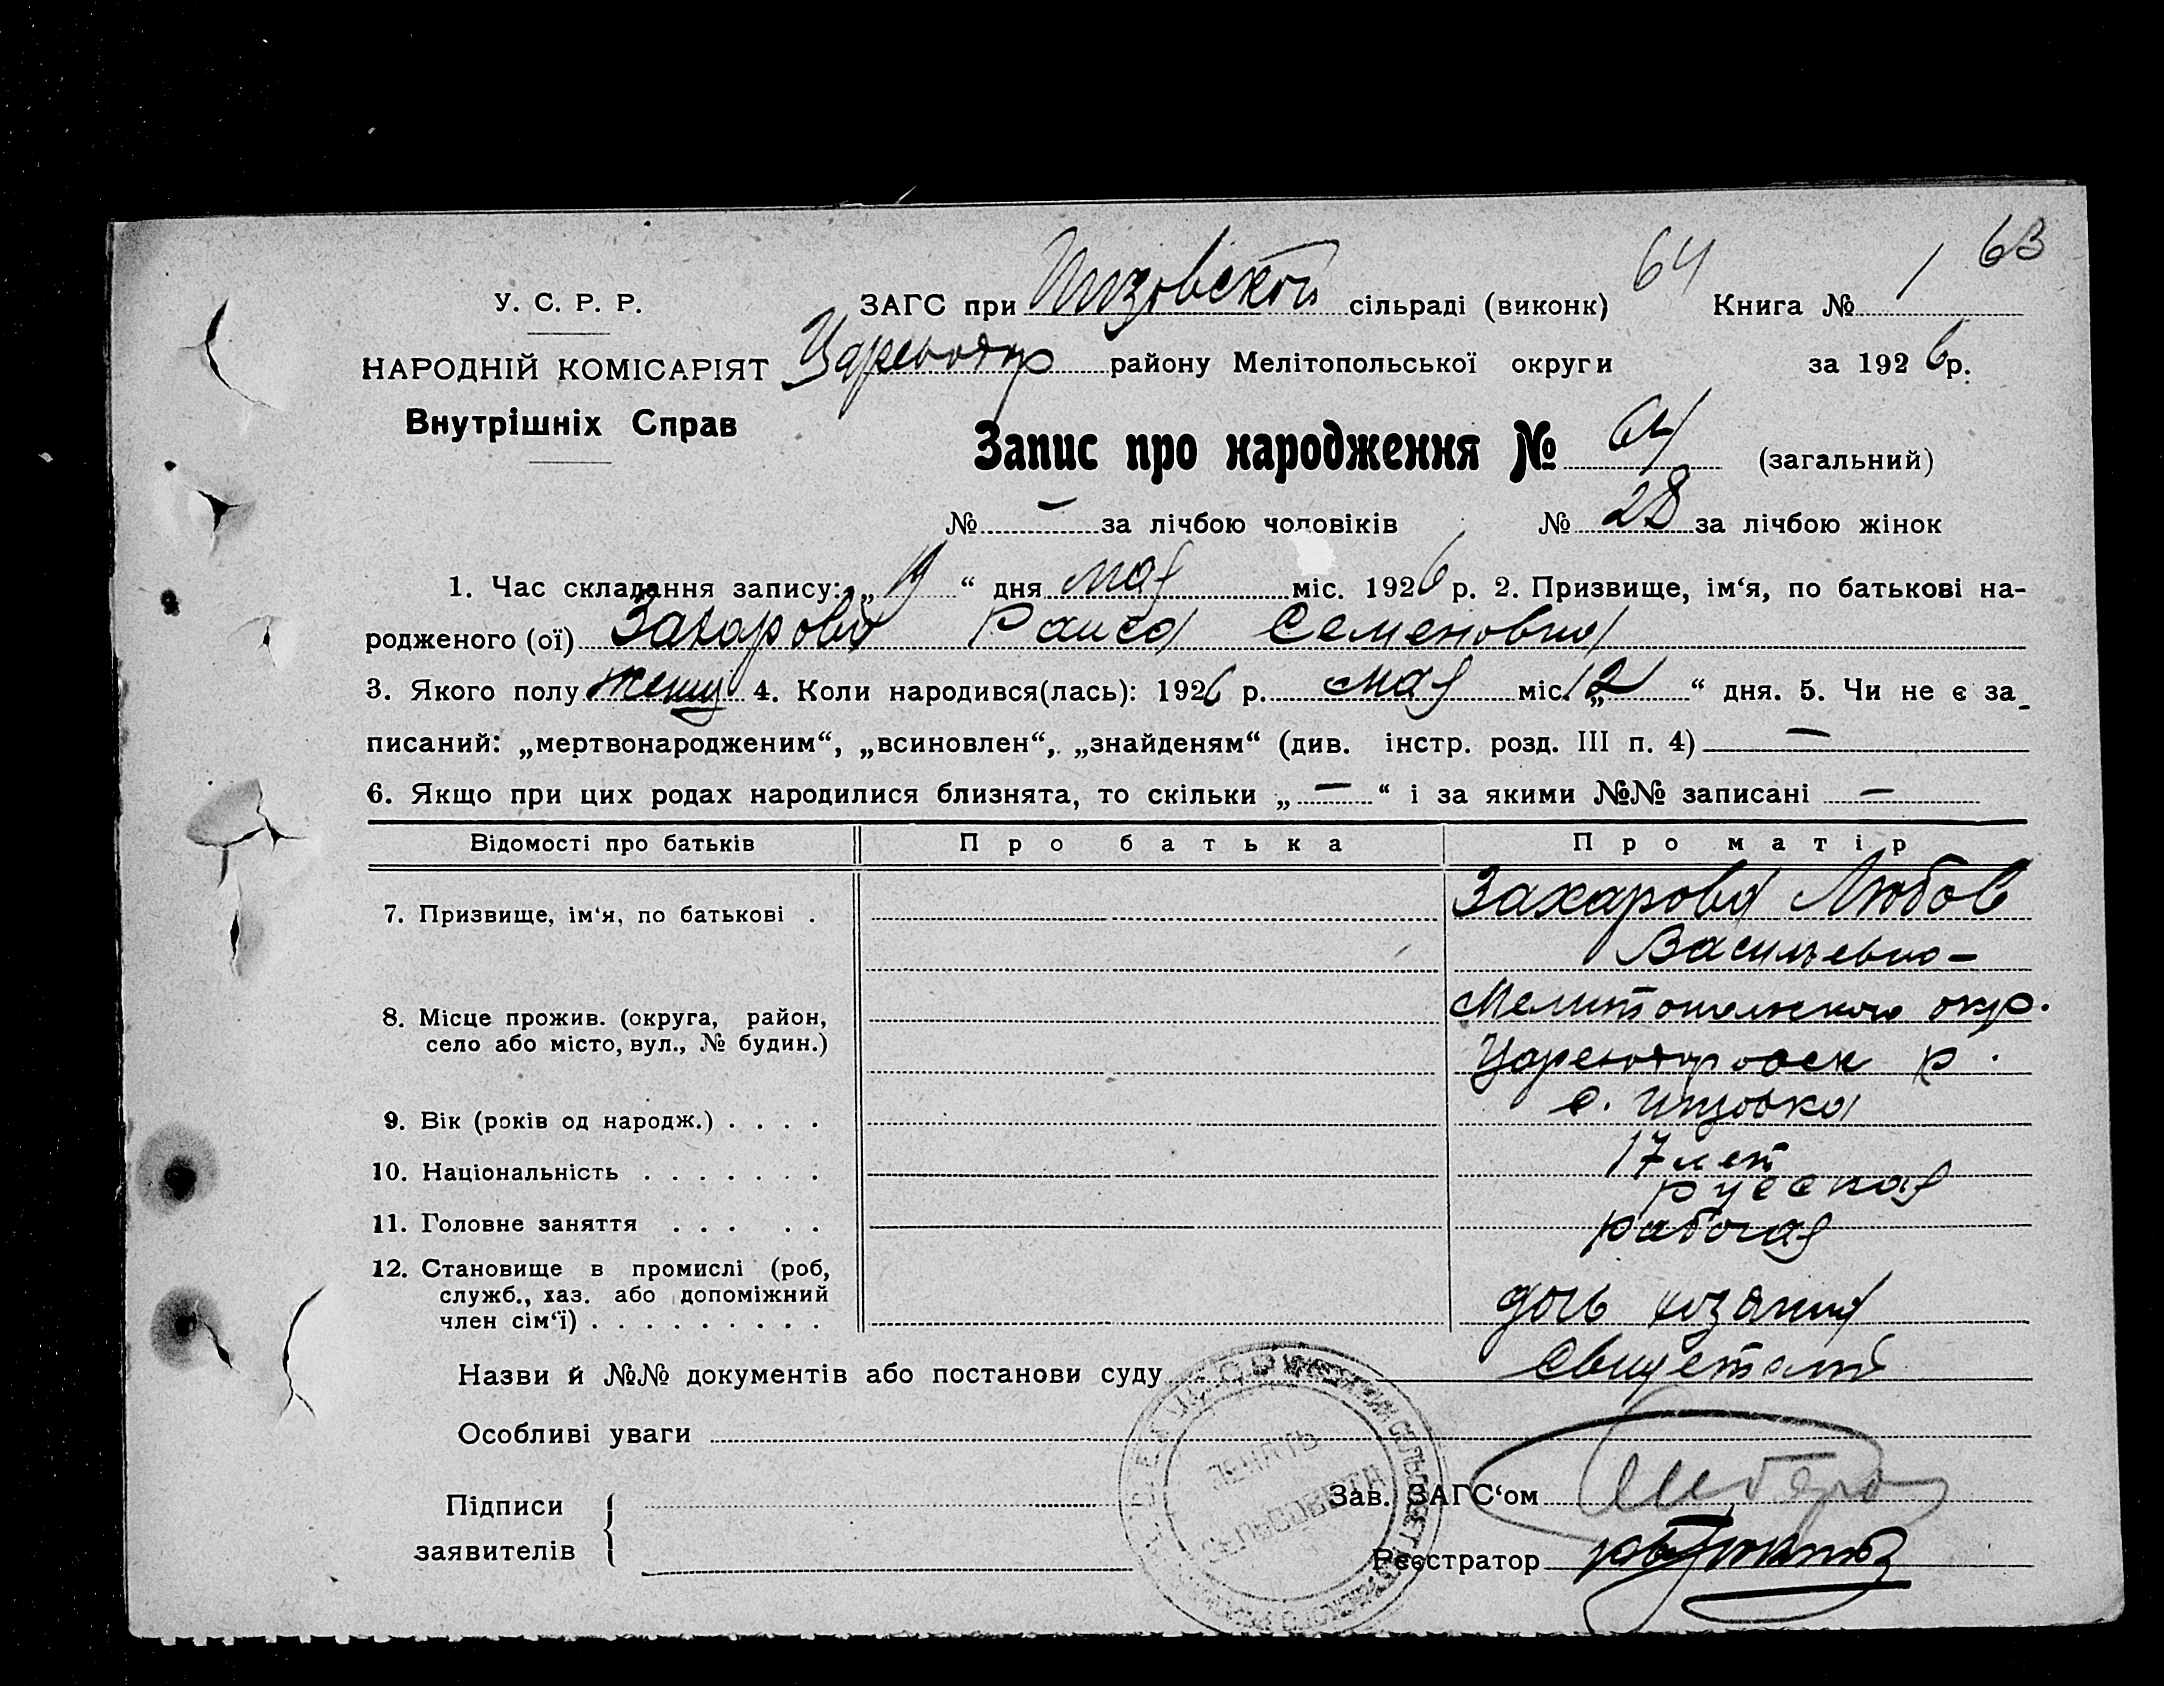 64
63
У. С. Р. Р.
ЗАГС при сільраді (виконк) Книга № 1
НАРОДНІЙ КОМІСАРІЯТ
району Мелітопольської округи за 1926 р.
Внутрішніх Справ
Запис про народження № (загальний)
№ – за лічбою чоловіків № 28 за лічбою жінок
1. Час складання запису: „ 19 “ дня мая міс. 1926 р. 2. Призвище, ім‘я, по батькові на-
родженого (ої) Захарова Раиса Семеновна
3. Якого полу 4. Коли народився(лась): 1926 р. мая міс. „ 12 “ дня. 5. Чи не є за-
писаний: „мертвонародженим“, „всиновлен“, „знайденям“ (див. інстр. розд. III п. 4) –
6. Якщо при цих родах народилися близнята, то скільки „ – “ і за якими №№ записані –
Відомості про батьків Про батька Про матір
7. Призвище, ім‘я, по батькові . Захарова Любов
Васильевна –
8. Місце прожив. (округа, район, Мелитопольского окр.
село або місто, вул., № будин.) р.
с.
9. Вік (років од народж.) . . . . 17 лет
10. Національність . . . . . . . русская
11. Головне заняття . . . . . рабочая
12. Становище в промислі (роб,
служб., хаз. або допоміжний дочь хозяина
член сім‘ї) . . . . . . . . .
Назви й №№ документів або постанови суду
Особливі уваги
Підписи Зав. ЗАГС‘ом
заявителів Реєстратор